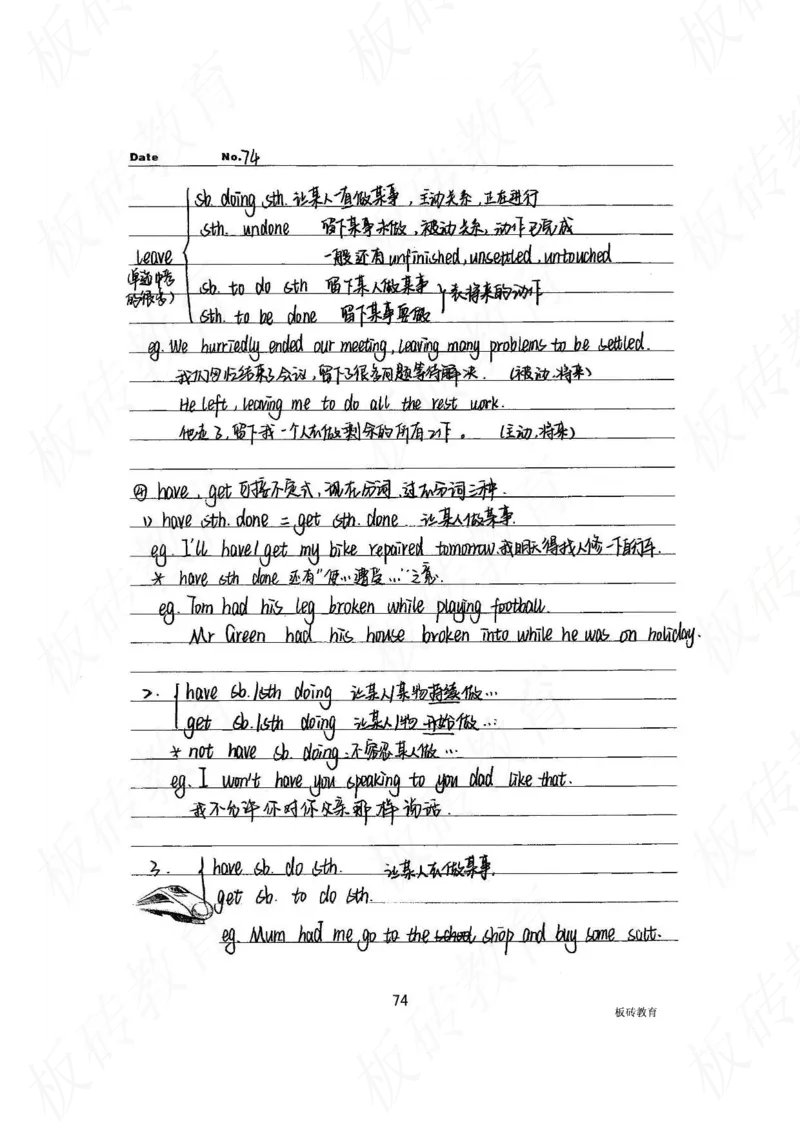 Date No.74
sb. doing sth. 让某人一直做某事，主动关系，正在进行
sth. undone 留下某事未做，被动关系，动作已完成
leave 一般还有unfinished, unsettled, untouched
(单选中考的很多)
sb. to do sth 留下某人做某事
sth. to be done 留下某事要做 } 表将来的动作
eg. We hurriedly ended our meeting, leaving many problems to be settled.
我们匆忙结束了会议，留下了很多问题等待解决. (被动,将来)
He left, leaving me to do all the rest work.
他走了，留下我一个人去做剩余的所有工作。 (主动,将来)
④ have, get 可接不定式，现在分词，过去分词三种.
1) have sth. done = get sth. done 让某人做某事.
eg. I'll have/get my bike repaired tomorrow.我明天得找人修一下自行车.
* have sth done 还有"使…遭受…"之意.
eg. Tom had his leg broken while playing football.
Mr Green had his house broken into while he was on holiday.
2. have sb./sth doing 让某人/某物持续做…
get sb./sth doing 让某人/物开始做…
* not have sb. doing:不容忍某人做…
eg. I won't have you speaking to you dad like that.
我不允许你对你父亲那样说话.
3. have sb. do sth. 让某人去做某事.
get sb. to do sth.
eg. Mum had me go to the school shop and buy some salt.
74
板砖教育